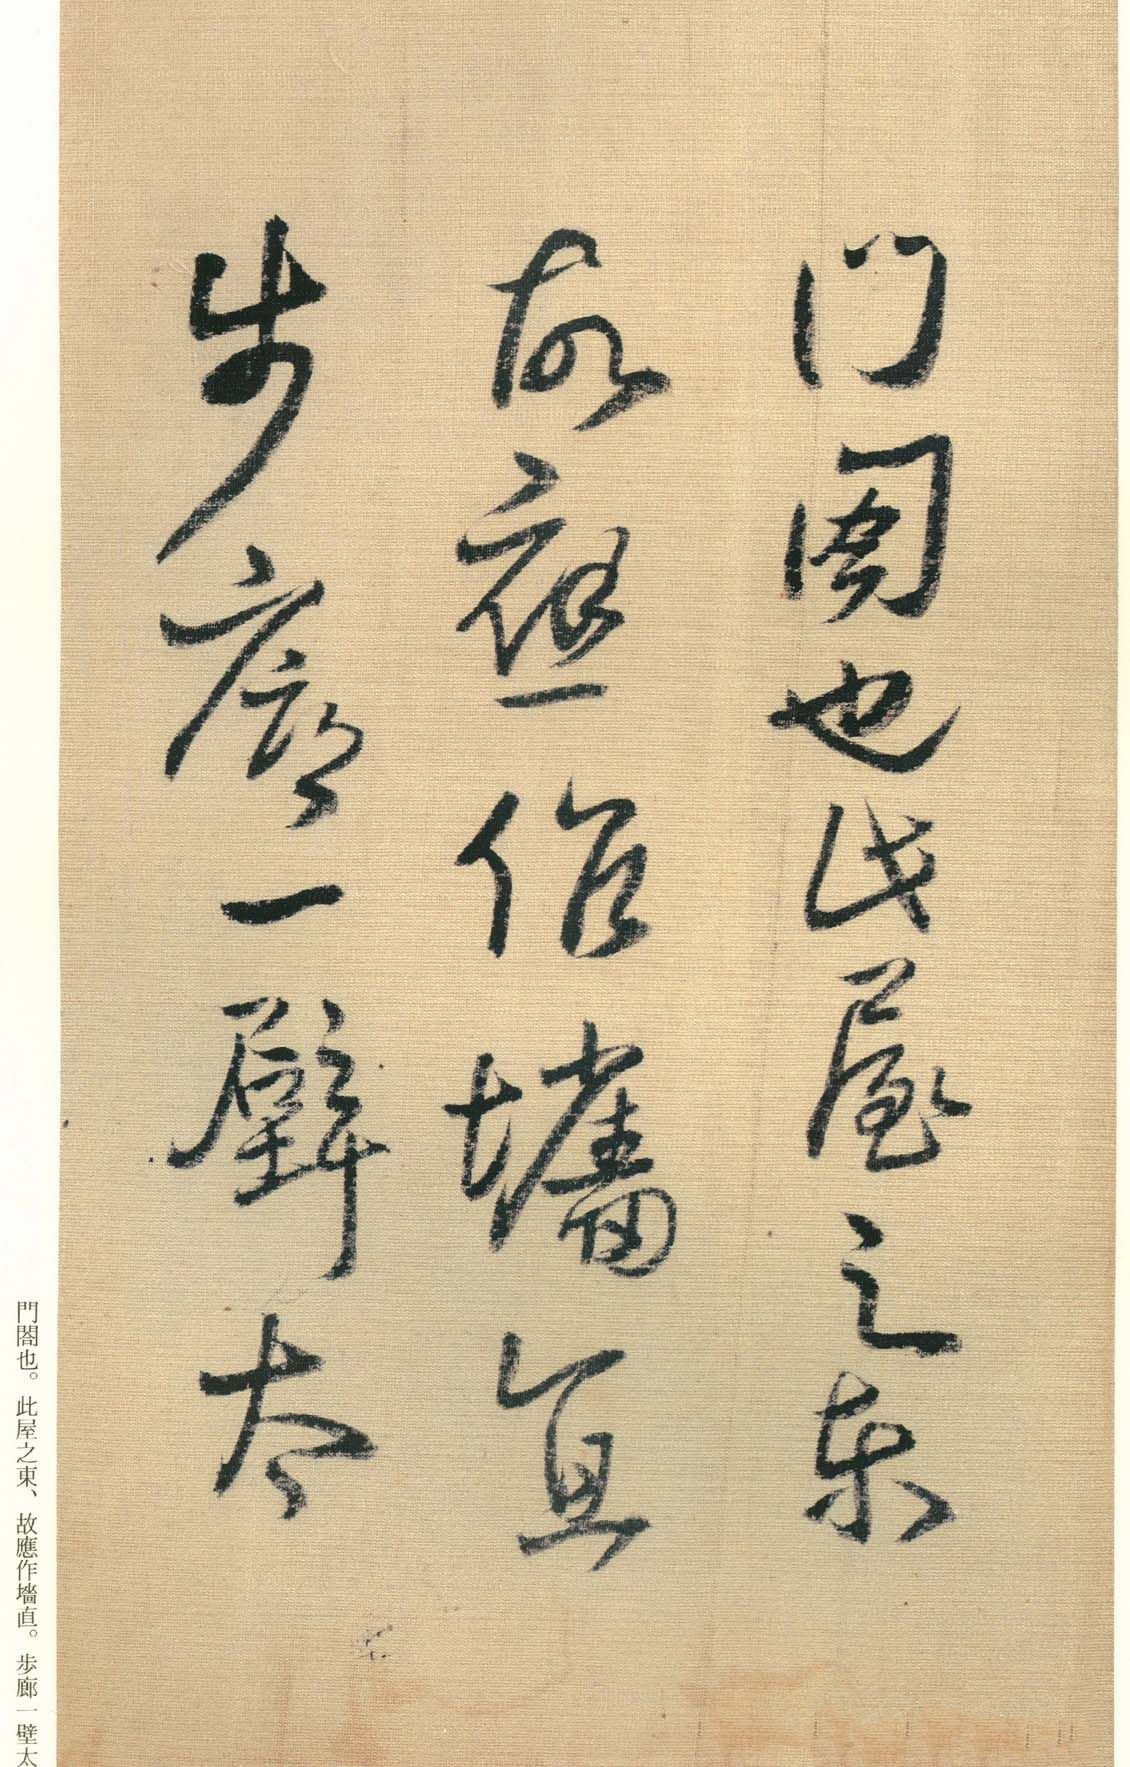 門閤也此屋之東
故應作墻直
步廊一壁太
門閤也。此屋之東、故應作墻直。步廊一壁太